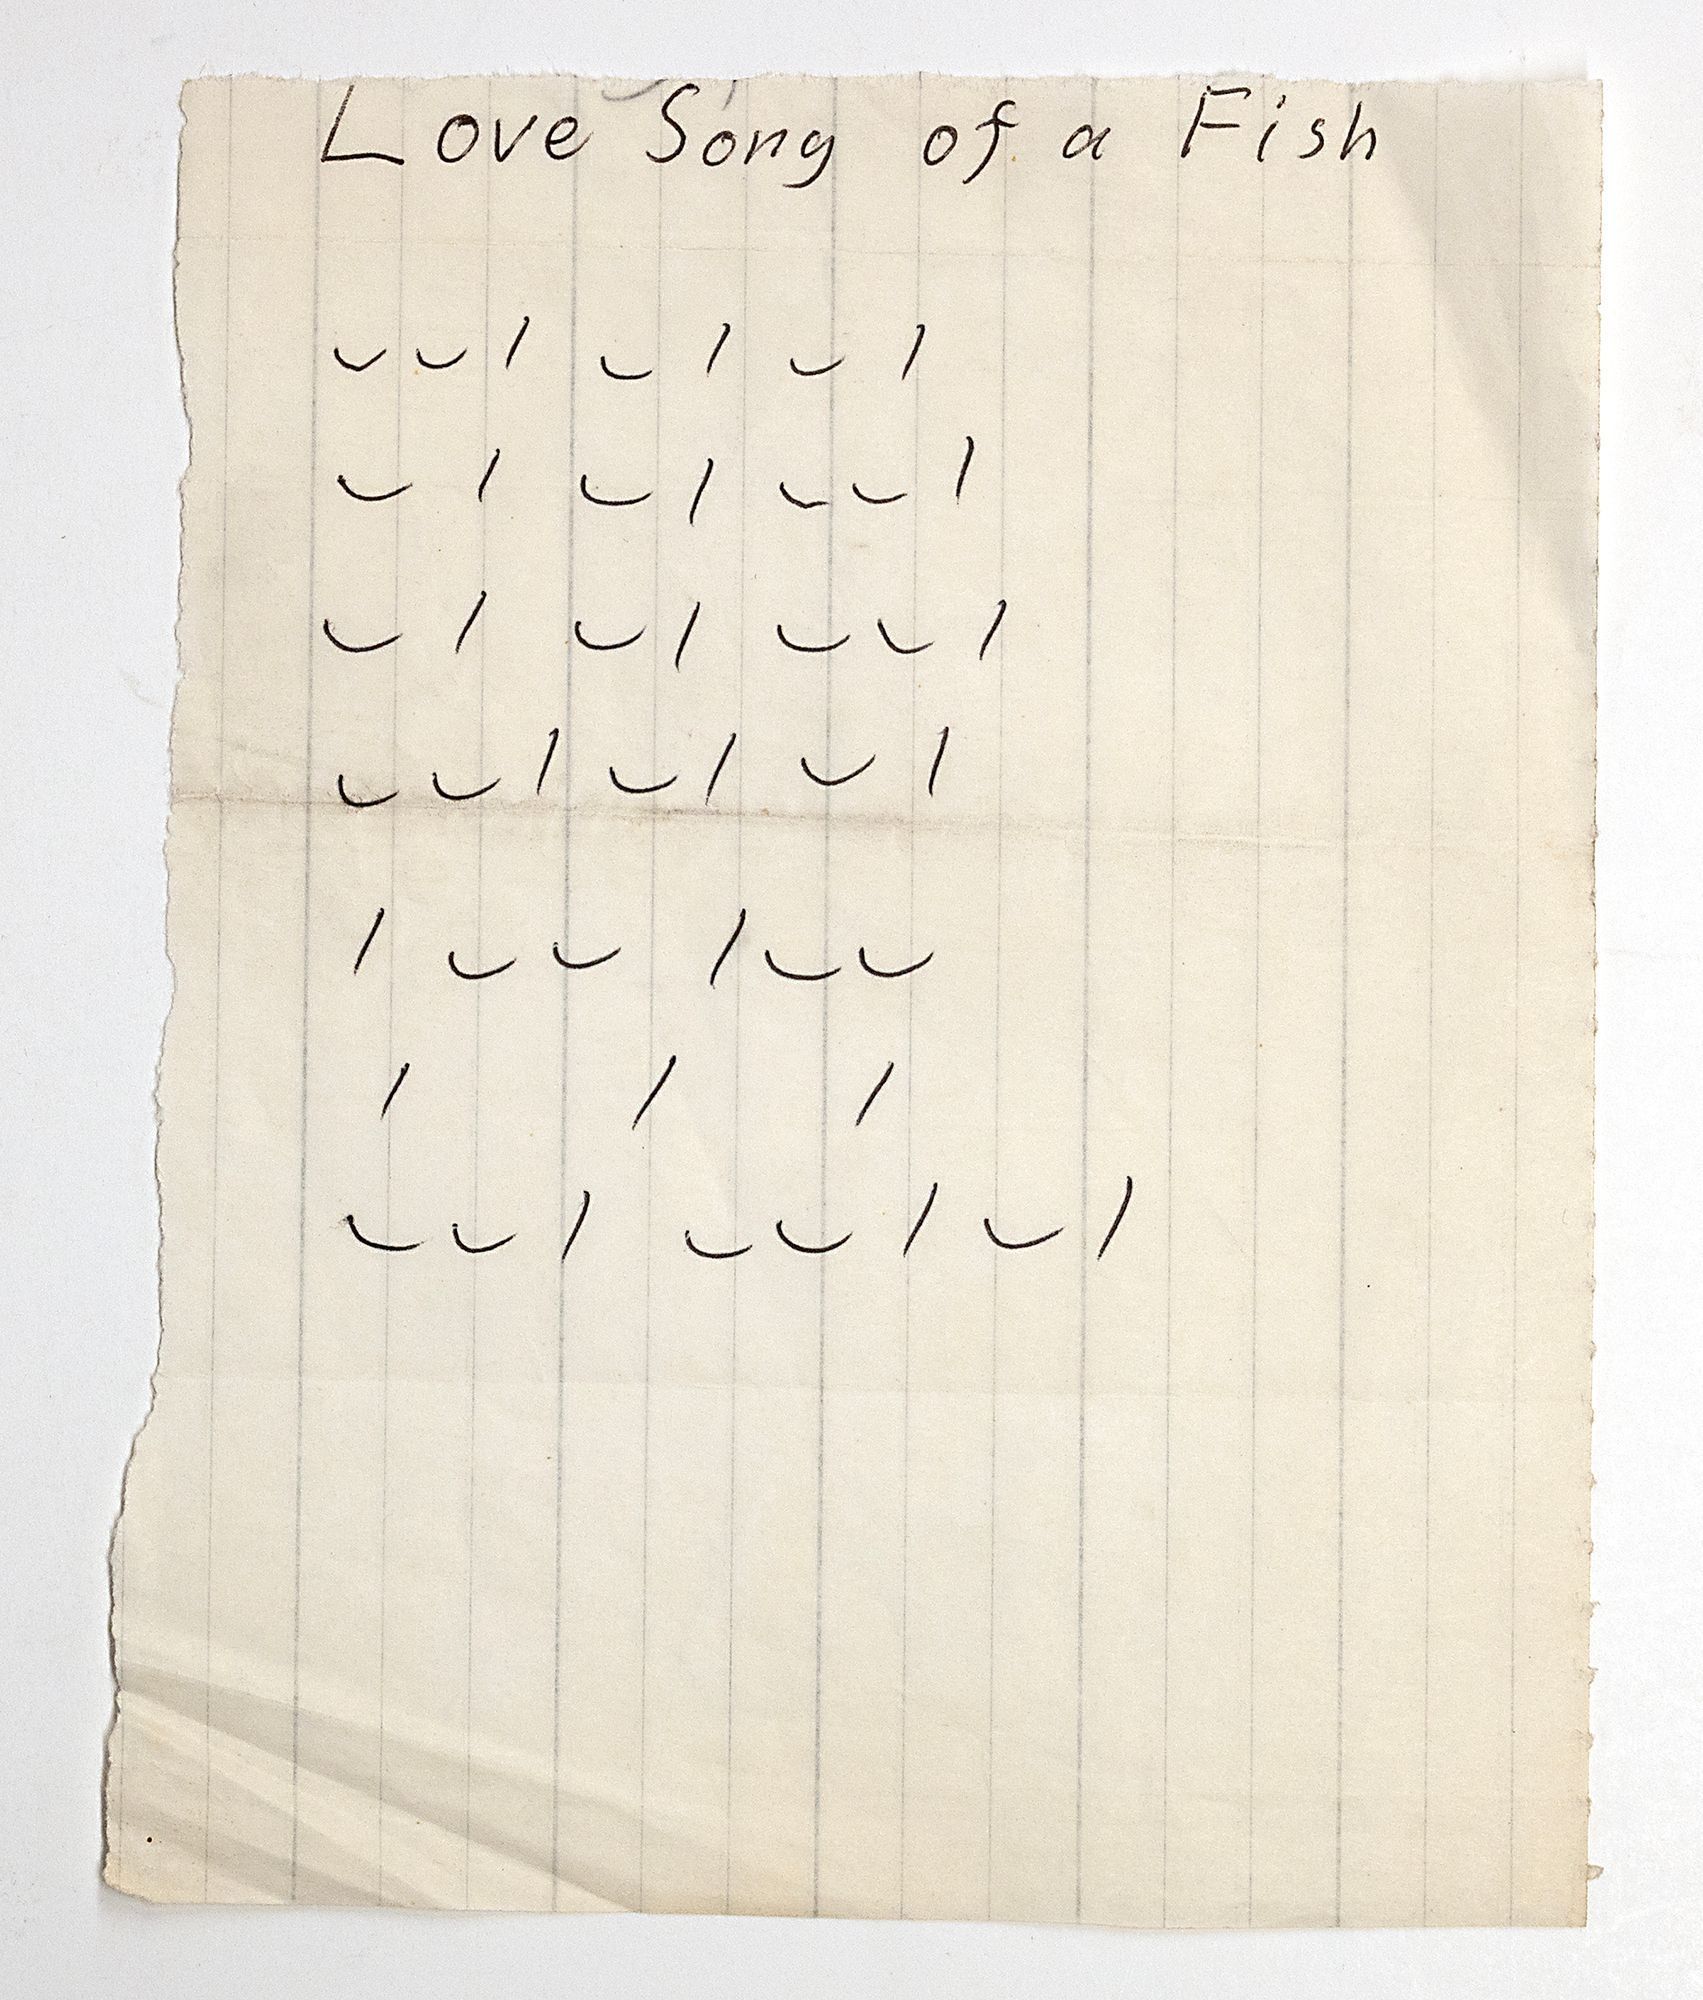 Love Song of a Fish
⏑ ⏑ / ⏑ / ⏑ /
⏑ / ⏑ / ⏑ ⏑ /
⏑ / ⏑ / ⏑ ⏑ /
⏑ ⏑ / ⏑ / ⏑ /
/ ⏑ ⏑ / ⏑ ⏑
/ / /
⏑ ⏑ / ⏑ ⏑ / ⏑ /